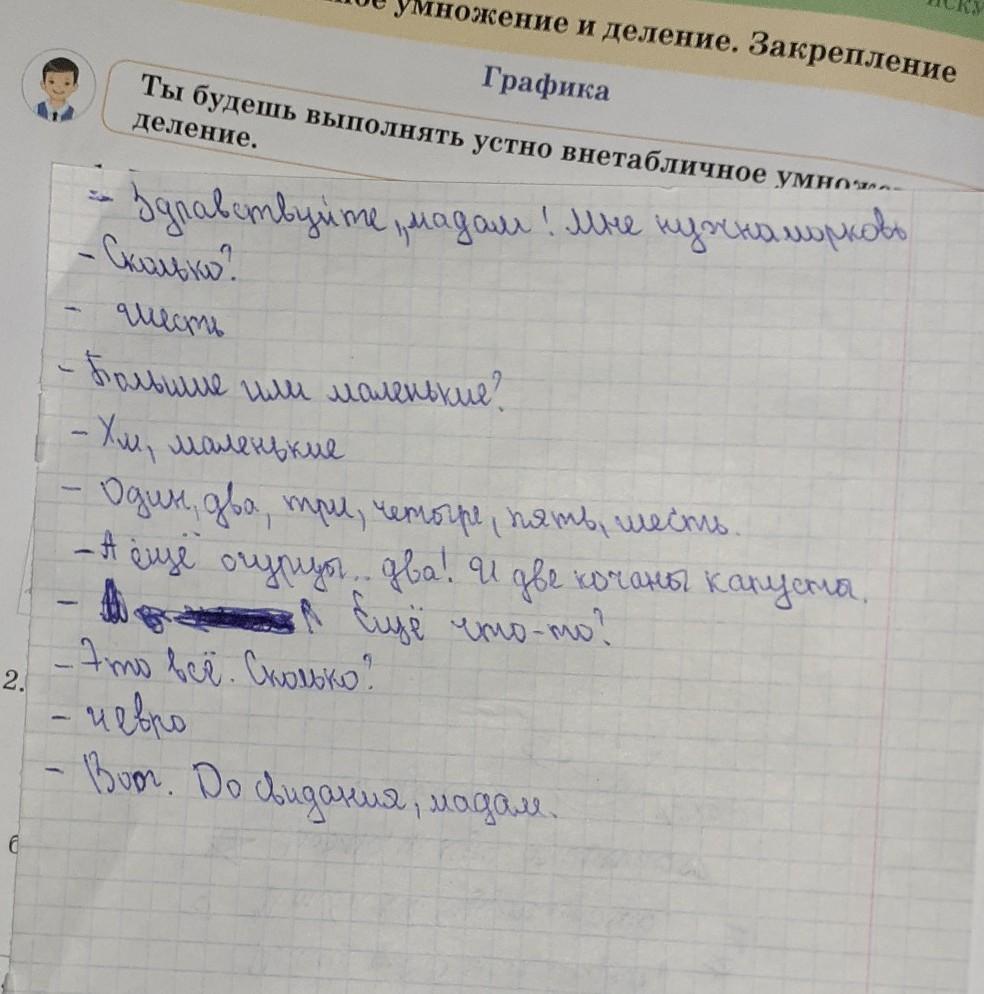 ное умножение и деление. Закрепление
Графика
Ты будешь выполнять устно внетабличное
деление.
- Здравствуйте, мадам! Мне нужна морковь
- Сколько?
- шесть
- Большие или маленькие?
- Хм, маленькие
- Один, два, три, четыре, пять, шесть.
- А ещё огурцы.. два! И две кочаны капусты.
- Ещё что-то?
- Это всё. Сколько?
- 4 евро
- Вот. До свидания, мадам.
2.